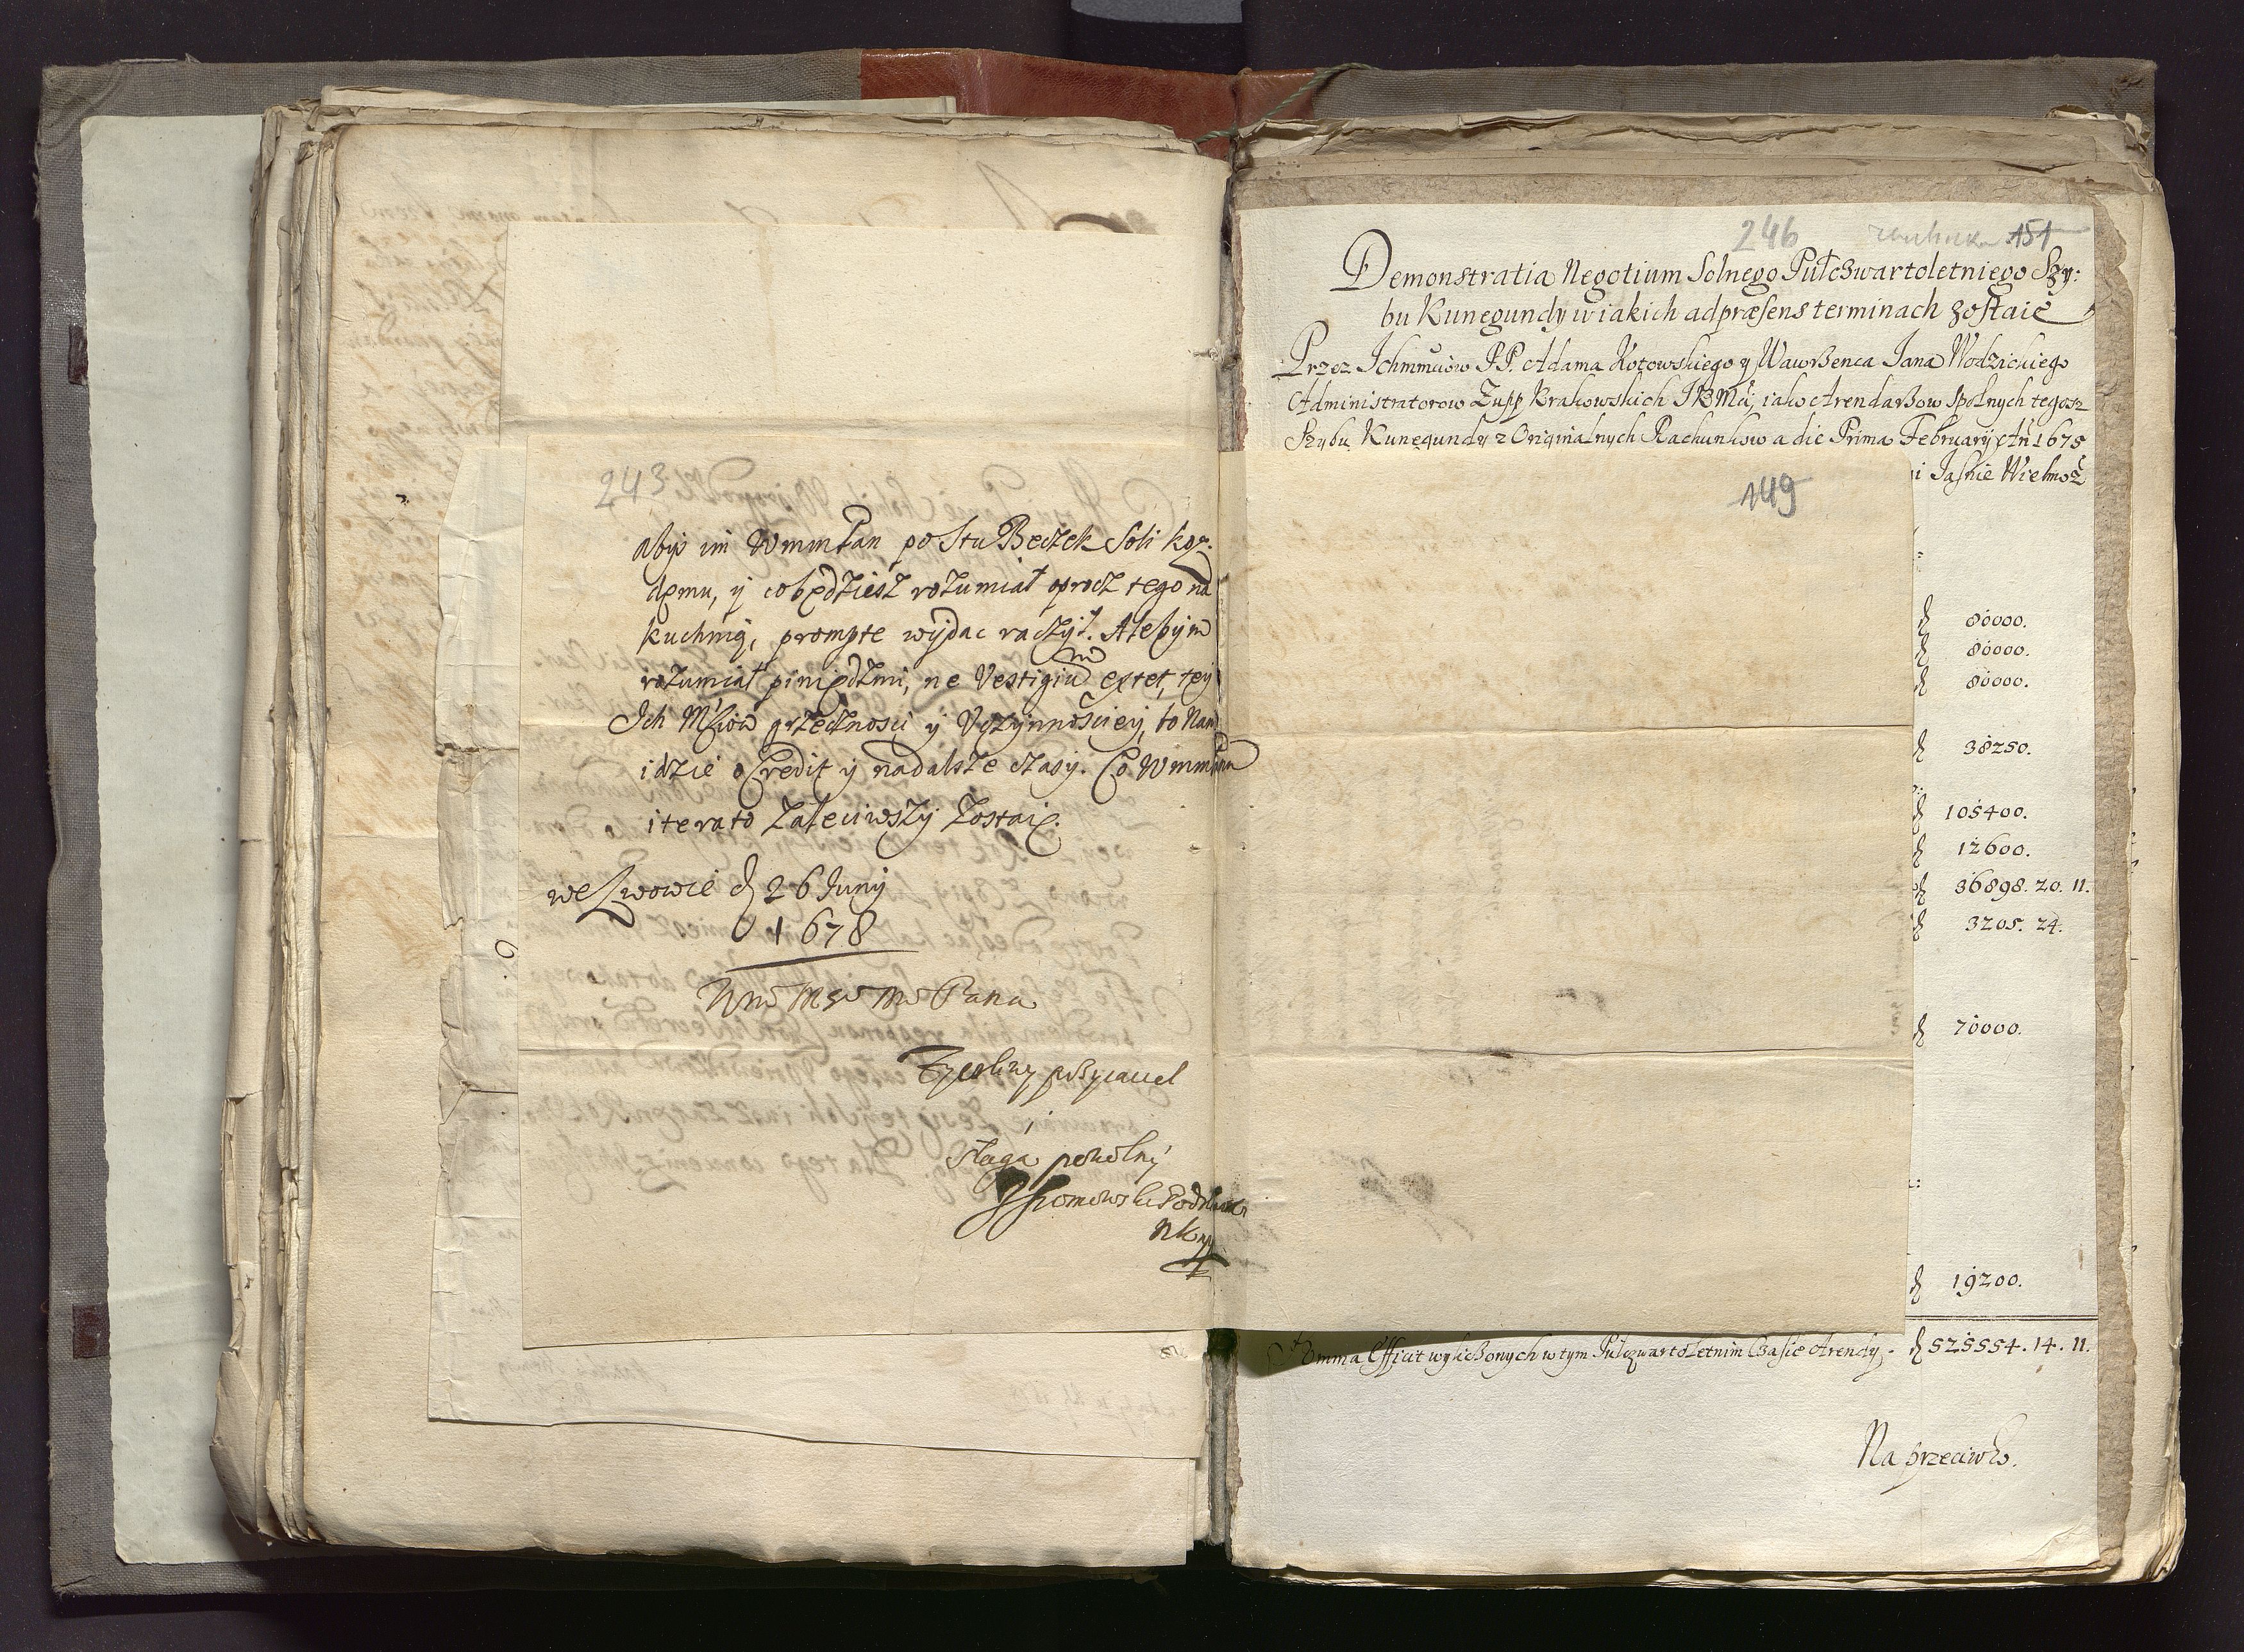 243
abys im WmmPan po stu Beczek Soli każ-
demu, y co będziesz rozumiał oprocz tego na
kuchnią, prompte wydac raczył. Ale bym
rozumiał piniędzmi, ne Vestigiū extet, tey
Ich Mściow grzecznosci y Uczynnościey, bo Nam
idzie o Credit y nadalsze czasy. Co WmmPanu
iterato zaleciwszy zostaię.
we Lwowie d 26 Juny
1678
Pana
Zyczliwy przyiaciel
y
sługa powolny
149
246 151
Demonstratia Negotium Solnego Pułczwartoletniego Szy:
bu Kunegundy w iakich ad præsens terminach zostaie
Przez Ichmmciow PP. Adama Kotowskiego y Wawrzenca Jana Wodzickiego
Administratorow Zupp Krakowskich JKMći, iako Arendarzow spolnych tegosz
Szybu Kunegundy z Originalnych Rachunkow a die Prima February Ań 1675
i Jaśnie Wielmoż
80000.
80000.
80000.
38250.
105400.
12600.
36898. 20. 11.
3205. 24.
70000.
19200.
Summa Efficit wyliczonych w tym Pułczwartoletnim Czasie Arendy. 525554. 14. 11.
Na przeciwko.